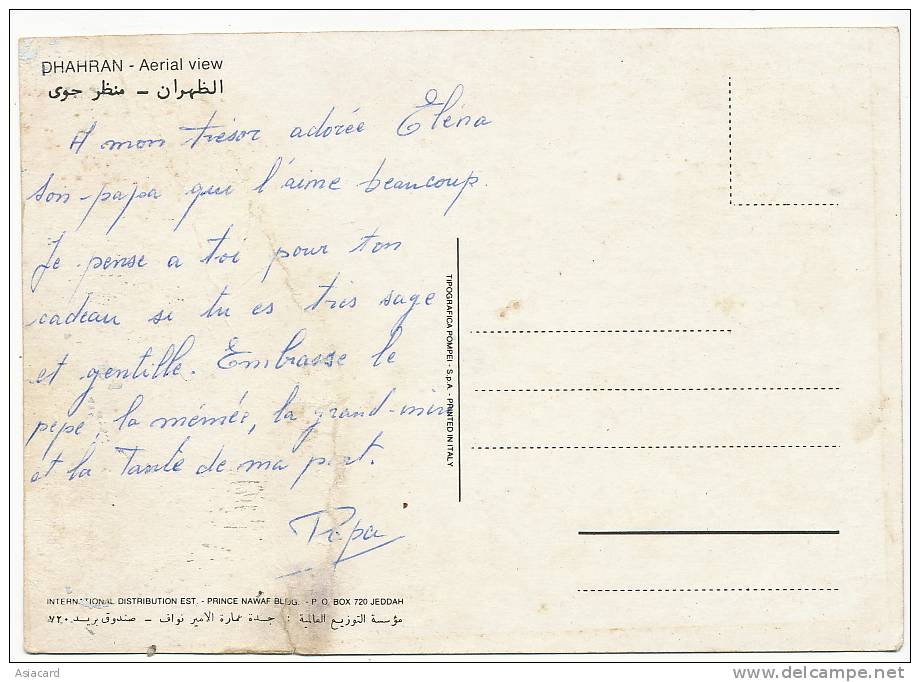 DHAHRAN - Aerial view
الظهران - منظر جوى
A mon trésor adorée Eléna
son papa qui l'aime beaucoup.
Je pense a toi pour ton
cadeau si tu es très sage
et gentille. Embrasse le
pépé, la mémée, la grand-mère
et la Tante de ma part.
Papa
TIPOGRAFICA POMPEI - S.p.A. - PRINTED IN ITALY
INTERNATIONAL DISTRIBUTION EST. - PRINCE NAWAF BLDG. - P.O. BOX 720 JEDDAH
مؤسسة التوزيع العالمية : جدة عمارة الامير نواف - صندوق بريد ٧٢٠
Asiacard
delcampe.net